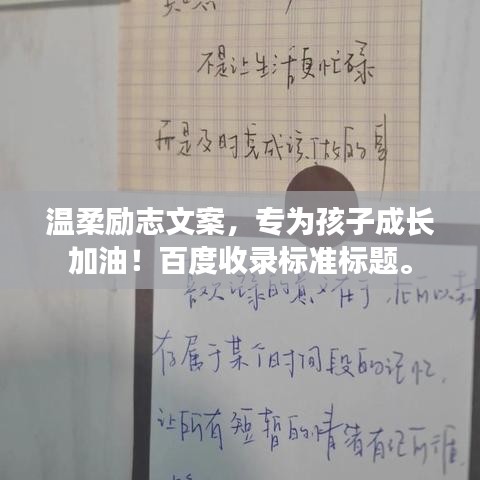 不是让生活更忙碌
而是及时完成该做的事
温柔励志文案，专为孩子成长
加油！百度收录标准标题。
记录的意义在于
存属于某个时间段的记忆,
让所有短暂的情绪有所